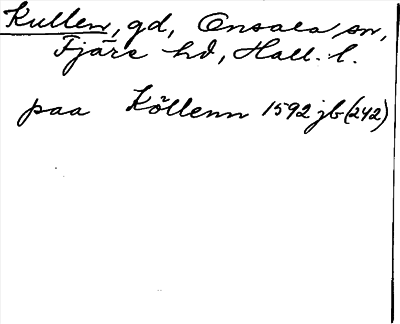 Kullen, gd, Onsala sn,
Fjäre hd, Hall. l.
paa Köllenn 1592 jb (242)